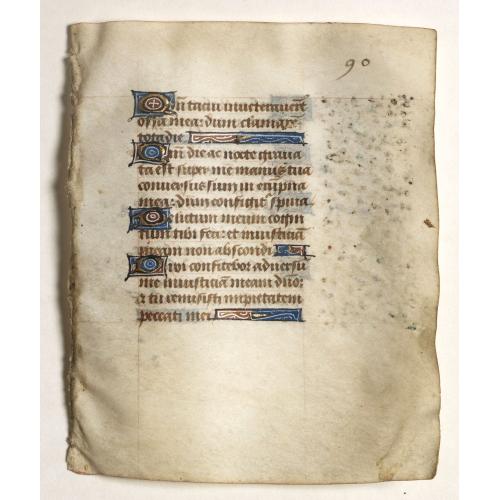 90
Qm tacui inveteraverut
ossa mea: dum clamare
tota die.
Qm die ac nocte grava
ta est super me manus tua
conversus sum in erupna
mea: dum configit spina
Delictum meum cogni
tum tibi feci: et iniusticiā
meam non abscondi
Dixi confitebor adversu
me iniusticiā meam dno:
et tu remisisti impietatem
peccati mei